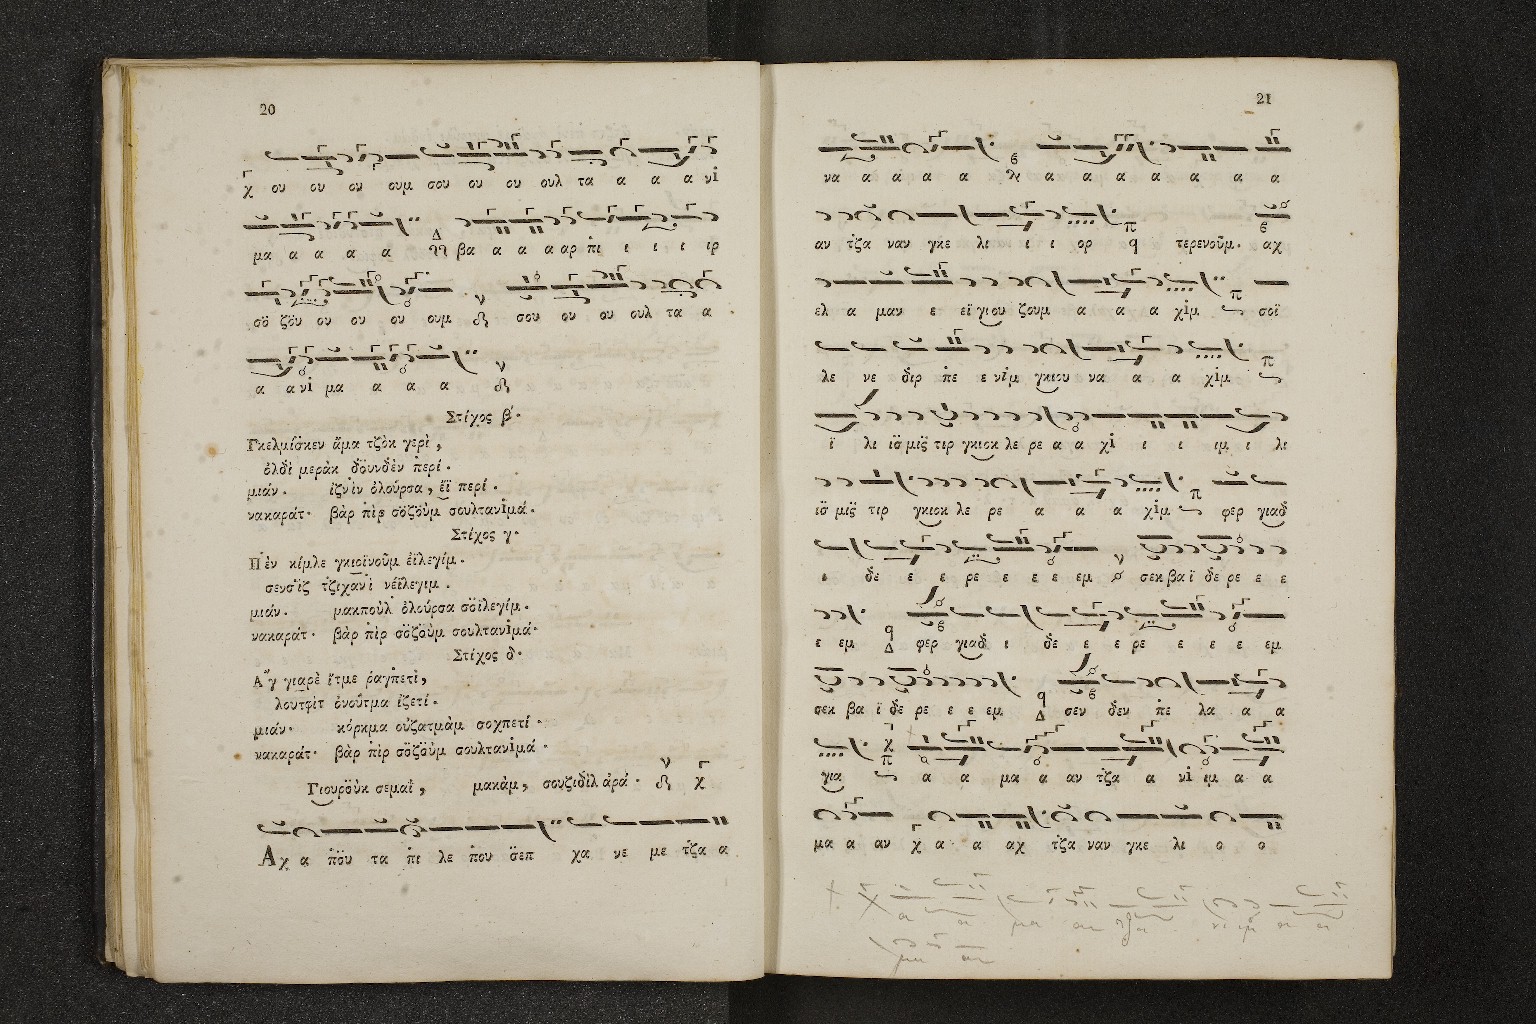 20
χ ου ου ου ουμ σου ου ου ουλ τα α α α νi
μα α α α α βα α α α αρ πι ι ι ι ιρ
σο ζου ου ου ου ουμ σου ου ου ουλ τα α
α α νi μα α α α
Στίχος β'.
Γκελμίσκεν ἄμα τζὸκ γερὶ,
ὀλδὶ μεράκ δουνδὲν περί.
μιάν. ἰζνὶν ὀλούρσα, ἔϊ περί.
νακαράτ. βὰρ πὶρ σὸζοὺμ σουλτανιμά.
Στίχος γ'.
Πὲν κίμλε γκιοϊνοῦμ ἐϊλεγίμ.
σενσὶζ τζιχανὶ νέϊλεγιμ.
μιάν. μακποὺλ ὀλούρσα σὸϊλεγίμ.
νακαράτ. βὰρ πὶρ σὸζοὺμ σουλτανιμά.
Στίχος δ'.
Αγ γιαρὲ ἔτμε ῥαγπετὶ,
λουτφὶτ ὀνοῦτμα ἰζετί.
μιάν. κόρκμα οὐζατμὰμ σοχπετί.
νακαράτ. βὰρ πὶρ σὸζοὺμ σουλτανιμά.
Γιουροὺκ σεμαΐ, μακὰμ, σουζιδὶλ ἀρά.
Αχ α που τα πι λε που σεπ χα νε με τζα α
21
να α α α α α α α α α α α α
αν τζα ναν γκε λι ι ι ορ τερενοῦμ. αχ
ελ α μαν ε εϊ γιου ζουμ α α α χιμ σοϊ
λε νε διρ πε ε νιμ γκιου να α α χιμ
ϊ λι ισ μις τιρ γκιοκ λε ρε α α χι ι ι ιμ ι λι
ισ μις τιρ γκιοκ λε ρε α α α χιμ φερ γιαδ
ι δε ε ε ρε ε ε ε εμ σεκ βα ϊ δε ρε ε ε
ε εμ φερ γιαδ ι δε ε ε ρε ε ε ε εμ
σεκ βα ϊ δε ρε ε ε εμ σεν δεν πε λα α α
για α α μα α αν τζα α νi ιμ α α
μα α αν χ α α αχ τζα ναν γκε λι ο ο